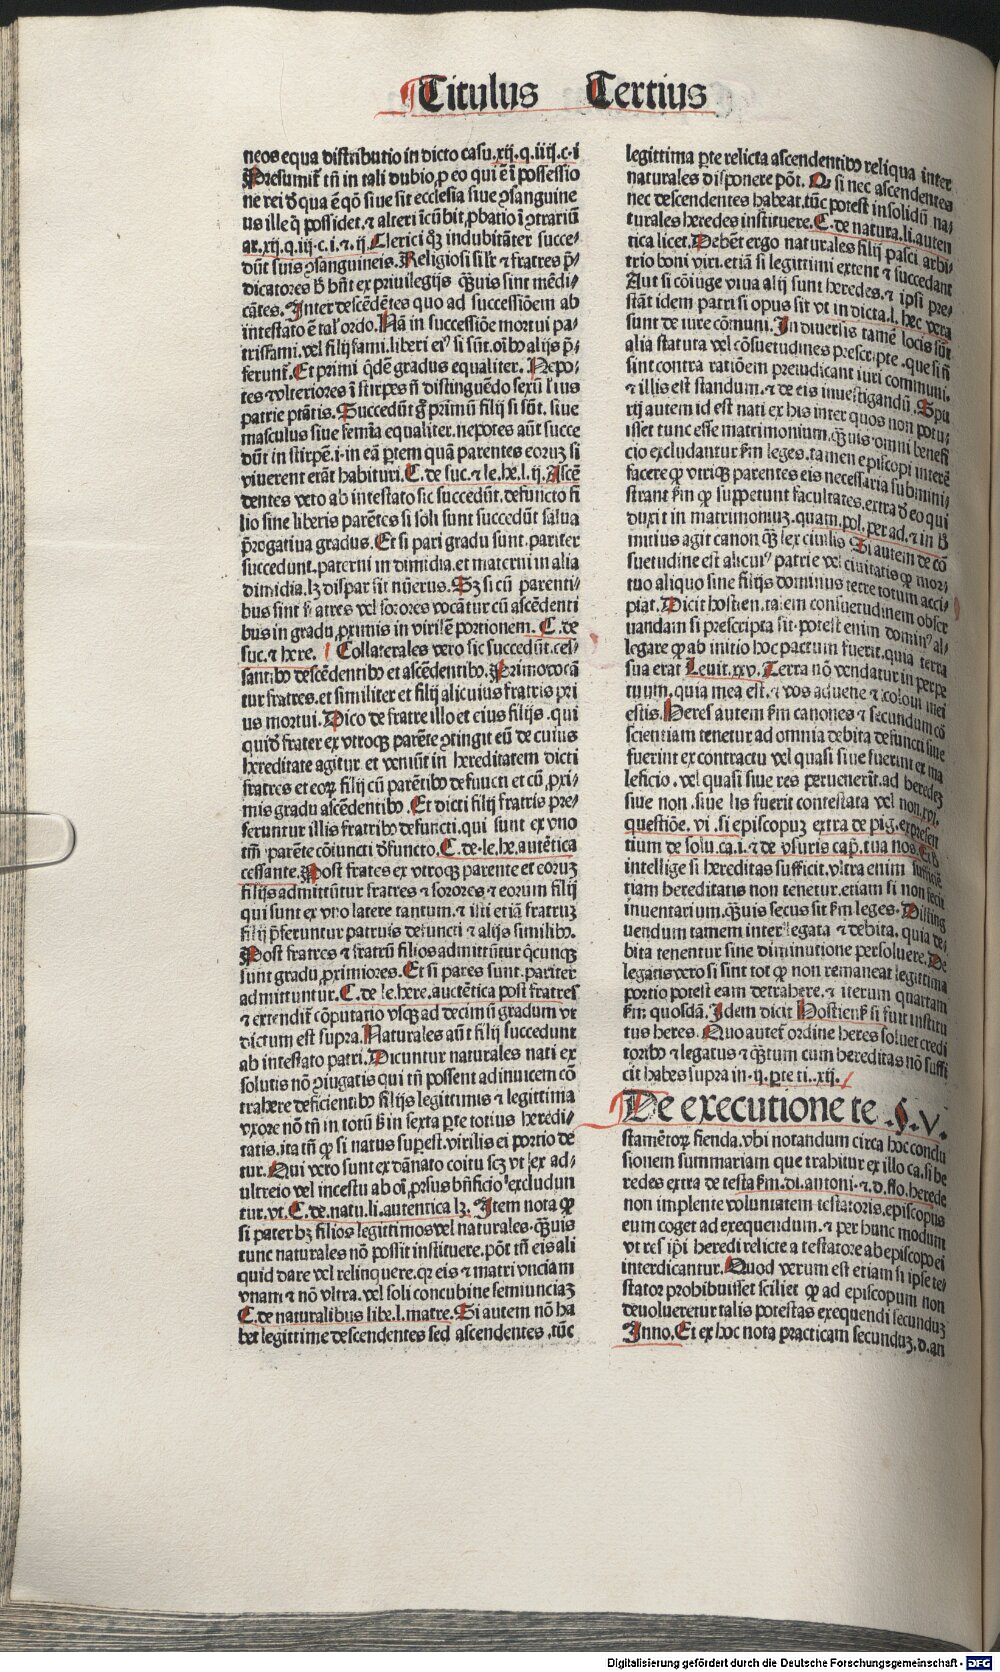 Titulus Tertius
neos equa distributio in dicto casu.xij.q.iiij.c.i
Presumit̄ tn̄ in tali dubio,ꝓ eo qui ē ī possessio
ne rei ꝺ qua ē q̄o siue sit ecclesia siue ꝯsanguine
us ille q̇ possidet.⁊ alteri īcūbit,ꝓbatio ī ꝯtrariū
ar.xij.q.iij.c.i.⁊.ij.Clerici qꝫ indubitāter succe⸗
dūt suis ꝯsanguineis.Religiosi silr̄ ⁊ fratres p̄⸗
dicatores ꝺ bn̄t ex priuilegijs qꝫuis sint mēdi⸗
cātes.Inter descēdētes quo ad successiōem ab
intestato ē tal' ordo.Nā in successiōe mortui pa⸗
trissami.vel filij fami.liberi ei' si sūt.oībꝰ alijs p̄⸗
ferunt̄.Et primi q̇dē gradus equaliter. Nepo⸗
tes ⁊ vlteriores ī stirpes n̄ distinguēdo sexū l' ius
patrie ptātis.Succedūt g̊ primū filij si sūt. siue
masculus siue femīa equaliter.nepotes aūt succe
dūt in stirpē.i.in eā ꝑtem quā parentes eoruꝫ si
viuerent erāt habituri.C.de suc.⁊ le.he.l.ij.Ascē
dentes vero ab intestato sic succedūt.defuncto fi
lio sine liberis parētes si soli sunt succedūt salua
p̄rogatiua gradus.Et si pari gradu sunt.pariter
succedunt.paterni in dimidia.et materni in alia
dimidia.lꝫ dispar sit nūerus.Sꝫ si cū parenti⸗
bus sint fratres vel sorores vocātur cū ascēdenti
bus in gradu,ꝓximis in virilē portionem. C.de
suc.⁊ here. Collaterales vero sic succedūt.ces⸗
santibꝰ descēdentibꝰ et ascēdentibꝰ.Primo vocā
tur fratres.et similiter et filij alicuius fratris pri
us mortui.Dico de fratre illo et eius filijs.qui
quiꝺ frater ex vtroqꝫ parēte ꝯtingit eū de cuius
hereditate agitur et veniūt in hereditatem dicti
fratres et eoꝝ filij cū parētibꝰ defuncti et cū ,ꝓxi⸗
mis gradu ascēdentibꝰ.Et dicti filij fratris pre⸗
feruntur illis fratribꝰ defuncti.qui sunt ex vno
tm̄ parēte cōiuncti ꝺfuncto.C.de.le.he.autētica
cessante.Post frates ex vtroqꝫ parente et eoruꝫ
filijs admittūtur fratres ⁊ sorores ⁊ eorum filij
qui sunt ex vno latere tantum.⁊ isti etiā fratruꝫ
filij p̄feruntur patruis defuncti ⁊ alijs similibꝰ.
Post fratres ⁊ fratrū filios admittūtur q̇cunqꝫ
sunt gradu,ꝓximiores.Et si pares sunt.pariter
admittuntur.C.de le.here.auctētica post fratres
⁊ extendit̄ cōputatio vsqꝫ ad decimū gradum vt
dictum est supra.Naturales aūt filij succedunt
ab intestato patri.Dicuntur naturales nati ex
solutis nō ꝯiugatis qui tn̄ possent adinuicem cō
trahere deficientibꝰ filijs legittimis ⁊ legittima
vxore nō tn̄ in totū s̄ in sexta ꝑte totius heredi⸗
tatis.ita tn̄ ꝙ si natus suꝑest.virilis ei portio de
tur.Qui vero sunt ex dānato coitu scꝫ vt ex ad⸗
ulterio vel incestu ab oī,ꝓrsus bn̄ficio excludun
tur.vt.C.de.natu.li.autentica lꝫ. Item nota ꝙ
si pater hꝫ filios legittimos vel naturales.qꝫuis
tunc naturales nō possit instituere.pōt tn̄ eis ali
quid dare vel relinquere.qꝛ eis ⁊ matri vnciam
vnam ⁊ nō vltra.vel soli concubine semiunciaꝫ
C.de naturalibus libe.l.matre.Si autem nō ha
bet legittime descendentes sed ascendentes.tūc
legittima ꝑte relicta ascendentibꝰ reliqua inter
naturales disponere pōt. Qꝫ si nec ascendentes
nec descendentes habeat.tūc potest insolidū na⸗
turales heredes instituere.C.de natura.li.auten
tica licet.Debēt ergo naturales filij pasci arbi⸗
trio boni viri.etiā si legittimi extent ⁊ succedant
Aut si cōiuge viua alij sunt heredes.⁊ ipsi pre⸗
stāt idem patri si opus sit vt in dicta.l.hec vera
sunt de iure cōmuni.In diuersis tamē locis sūt
alia statuta vel cōsuetudines prescripte.que si n̄
sint contra ratiōem preiudicant iuri communi.
⁊ illis est standum.⁊ de eis inuestigandū.Spu
rij autem id est nati ex his inter quos non potu⸗
isset tunc esse matrimonium.qꝫuis omni benefi
cio excludantur fm̄ leges.tamen episcopi interē
facere ꝙ vtriqꝫ parentes eis necessaria submini⸗
strant fm̄ ꝙ suppetunt facultates.extra ꝺ eo qui
duxit in matrimoniuꝫ.quam.pol.per ad.⁊ in h̄
mitius agit canon qꝫ lex ciuilis Si autem de cō
suetudine est alicui' patrie vel ciuitatis ꝙ mor⸗
tuo aliquo sine filijs dominus terre totum acci⸗
piat.Dicit hostien.talem consuetudinem obser
uandam si prescripta sit.potest enim domin' al⸗
legare ꝙ ab initio hoc pactum fuerit.quia terra
sua erat Leuit.xxv.Terra nō vendatur in perpe
tuum.quia mea est.⁊ vos aduene ⁊ coloni mei
estis.Heres autem fm̄ canones ⁊ secundum cō
scientiam tenetur ad omnia debita defuncti siue
fuerint ex contractu vel quasi siue fuerint ex ma
leficio.vel quasi siue res peruenerit.ad heredeꝫ
siue non.siue lis fuerit contestata vel non.xvi.
questiōe.vi.si episcopuꝫ extra de pig.ex presen
tium de solu.ca.i.⁊ de vsuris cap̄.tua nos.Et h̄
intellige si hereditas sufficit.vltra enim sufficiē
tiam hereditatis non tenetur.etiam si non fecit
inuentarium.qꝫuis secus sit fm̄ leges.Disting
uendum tamen inter legata ⁊ debita.quia de⸗
bita tenentur sine diminutione persoluere.De
legatis vero si sint tot ꝙ non remaneat legittima
portio potest eam detrahere.⁊ iterum quartam
fm̄ quosdā.Idem dicit Hostien̄ si fuit institu
tus heres. Quo autem ordine heres soluet credi
toribꝰ ⁊ legatus ⁊ qꝫtum cum hereditas nō suffi
cit habes supra in.ij.ꝑte ti..xij.
De executione te .§.V.
stamētoꝝ fienda.vbi notandum circa hoc conclu
sionem summariam que trahitur ex illo ca.si he
redes extra de testa fm̄.di.antoni.⁊.d.flo.herede
non implente voluntatem testatoris.episcopus
eum coget ad exequendum.⁊ per hunc modum
vt res ip̄i heredi relicte a testatore ab episcopo ei
interdicantur.Quod verum est etiam si ipse te⸗
stator prohibuisset scilicet ꝙ ad episcopum non
deuolueretur talis potestas exequendi secunduꝫ
Inno.Et ex hoc nota practicam secunduꝫ.d.an
Digitalisierung gefördert durch die Deutsche Forschungsgemeinschaft - DFG